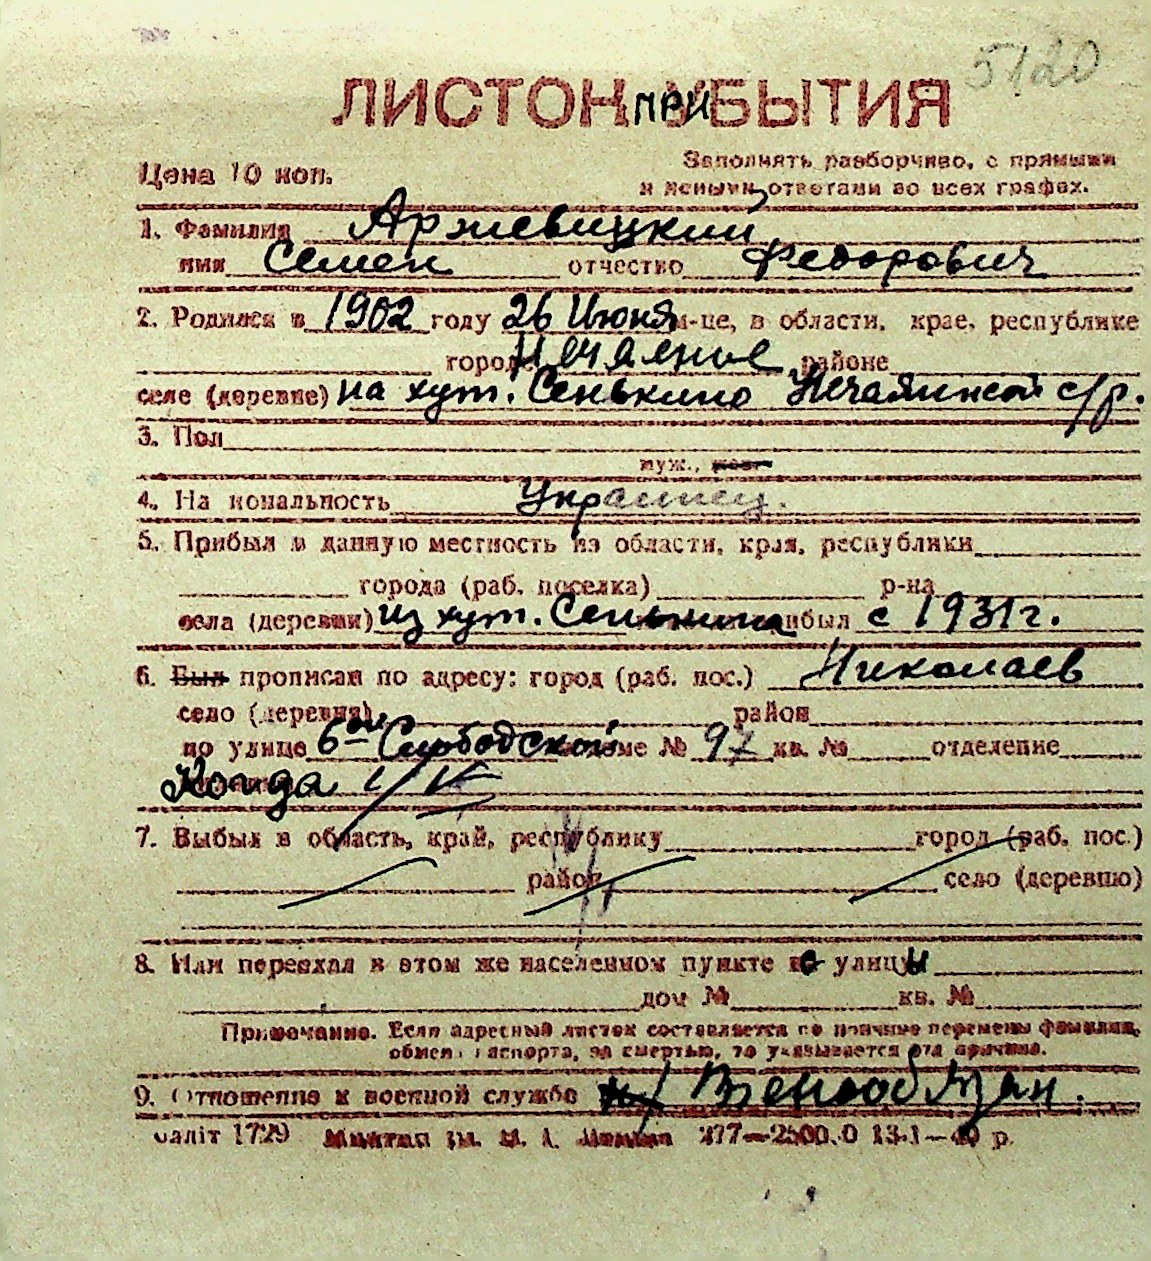 5120
ЛИСТОК ПРИБЫТИЯ
Цена 10 коп.
Заполнять разборчиво, с прямыми
и ясными ответами во всех графах.
1. Фамилия Аржевицкий
имя Семен отчество Федорович
2. Родился в 1902 году 26 Июня м-це, в области, крае, республике
городе Нечаяное районе
селе (деревне) на хут. Сенькино Нечаянской с/р.
3. Пол
муж., жен.
4. Национальность Украинец.
5. Прибыл в данную местность из области, края, республики
города (раб. поселка) р-на
села (деревни) из хут. Сенькина прибыл с 1931 г.
6. Был прописан по адресу: город (раб. пос.) Николаев
село (деревня) район
по улице 6ой Слободской доме № 97 кв. № отделение
Когда
7. Выбыл в область, край, республику город (раб. пос.)
район село (деревню)
8. Или переехал в этом же населенном пункте с улицы
дом № кв. №
Примечание. Если адресный листок составляется по причине перемены фамилии,
обмена паспорта, за смертью, то указывается эта причина.
9. Отношение к военной службе н/ Военнообязан.
Обліт 1729 277—2500.0 13-1—40 р.